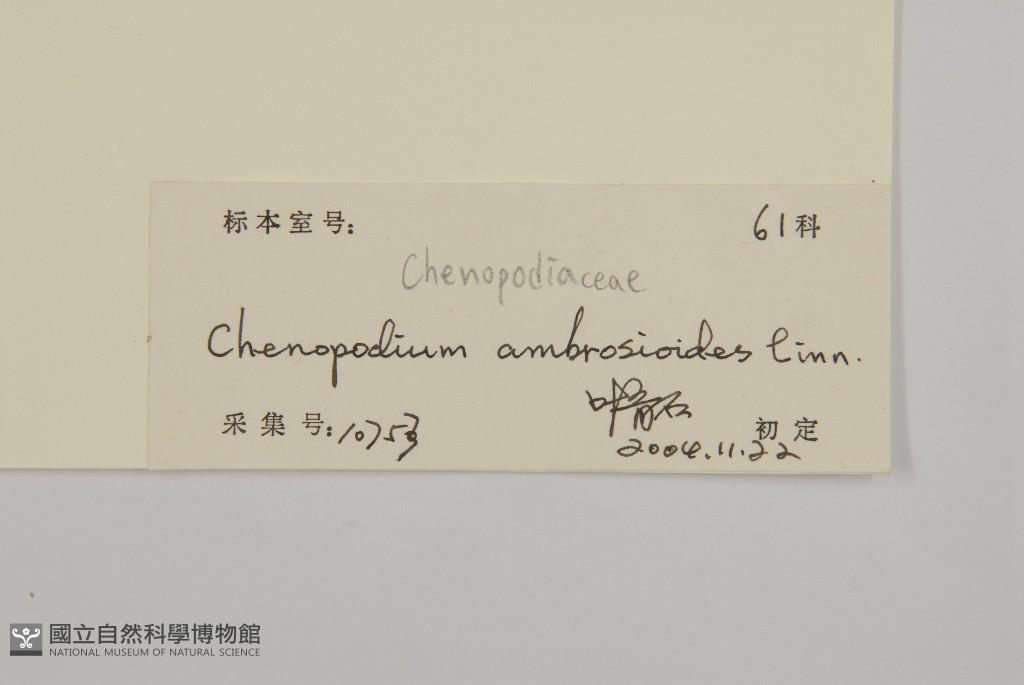 标本室号: 61科
Chenopodiaceae
Chenopodium ambrosioides Linn.
采集号: 10753 初定
2004.11.22
國立自然科學博物館
NATIONAL MUSEUM OF NATURAL SCIENCE